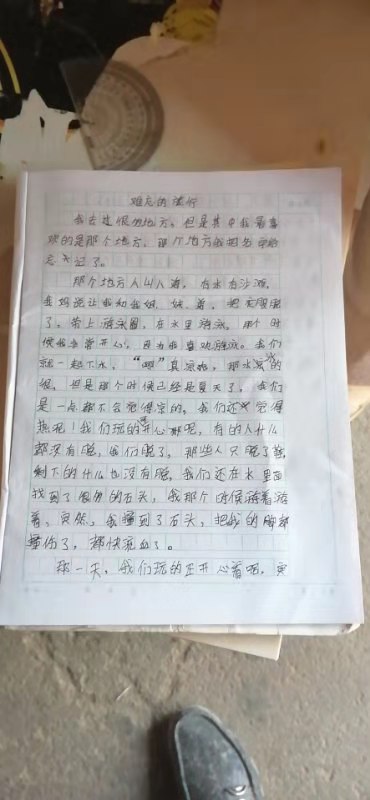 难忘的旅行
我去过很多地方，但是其中我最喜
欢的是那个地方，那个地方我把名字给
忘记了。
那个地方人山人海，有水有沙滩，
我妈说让我和我姐、妹、弟，把衣服脱
了，带上游泳圈，在水里游泳，那个时
候我非常开心，因为我喜欢游泳。我们
就一起下水，“啊”真凉快，那水凉的
很，但是那个时候已经是夏天了，我们
是一点都不会觉得凉的，我们还觉得
热呢！我们玩的开心都呢，有的人什么
都没有脱，我们脱了，那些人只脱了鞋
剩下的什么也没有脱，我们还在水里面
找到了很多的石头，我那个时候游着游
着，突然，我撞到了石头，把我的脚都
撞伤了，都快流血了。
那一天，我们玩的正开心着呢，突